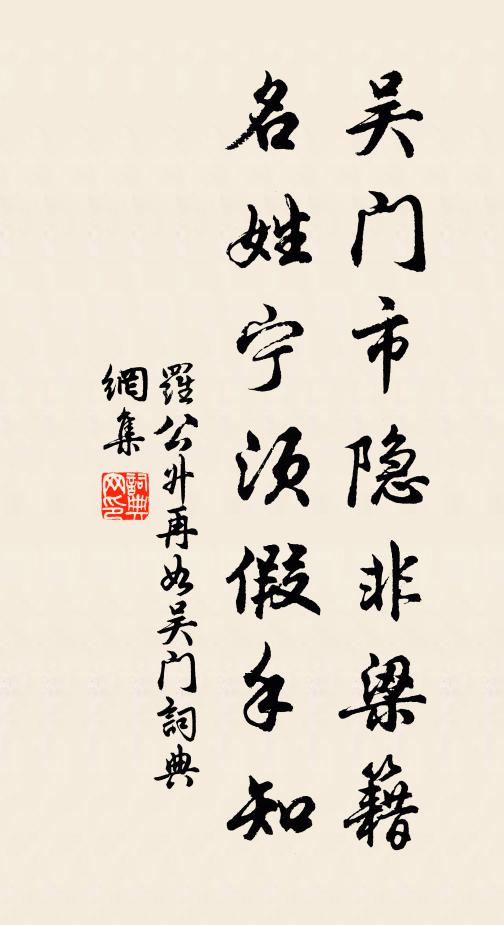 吴门市隐非梁籍
名姓宁须假手知
羅公升再如吴门詞典
網集
詞典
网印